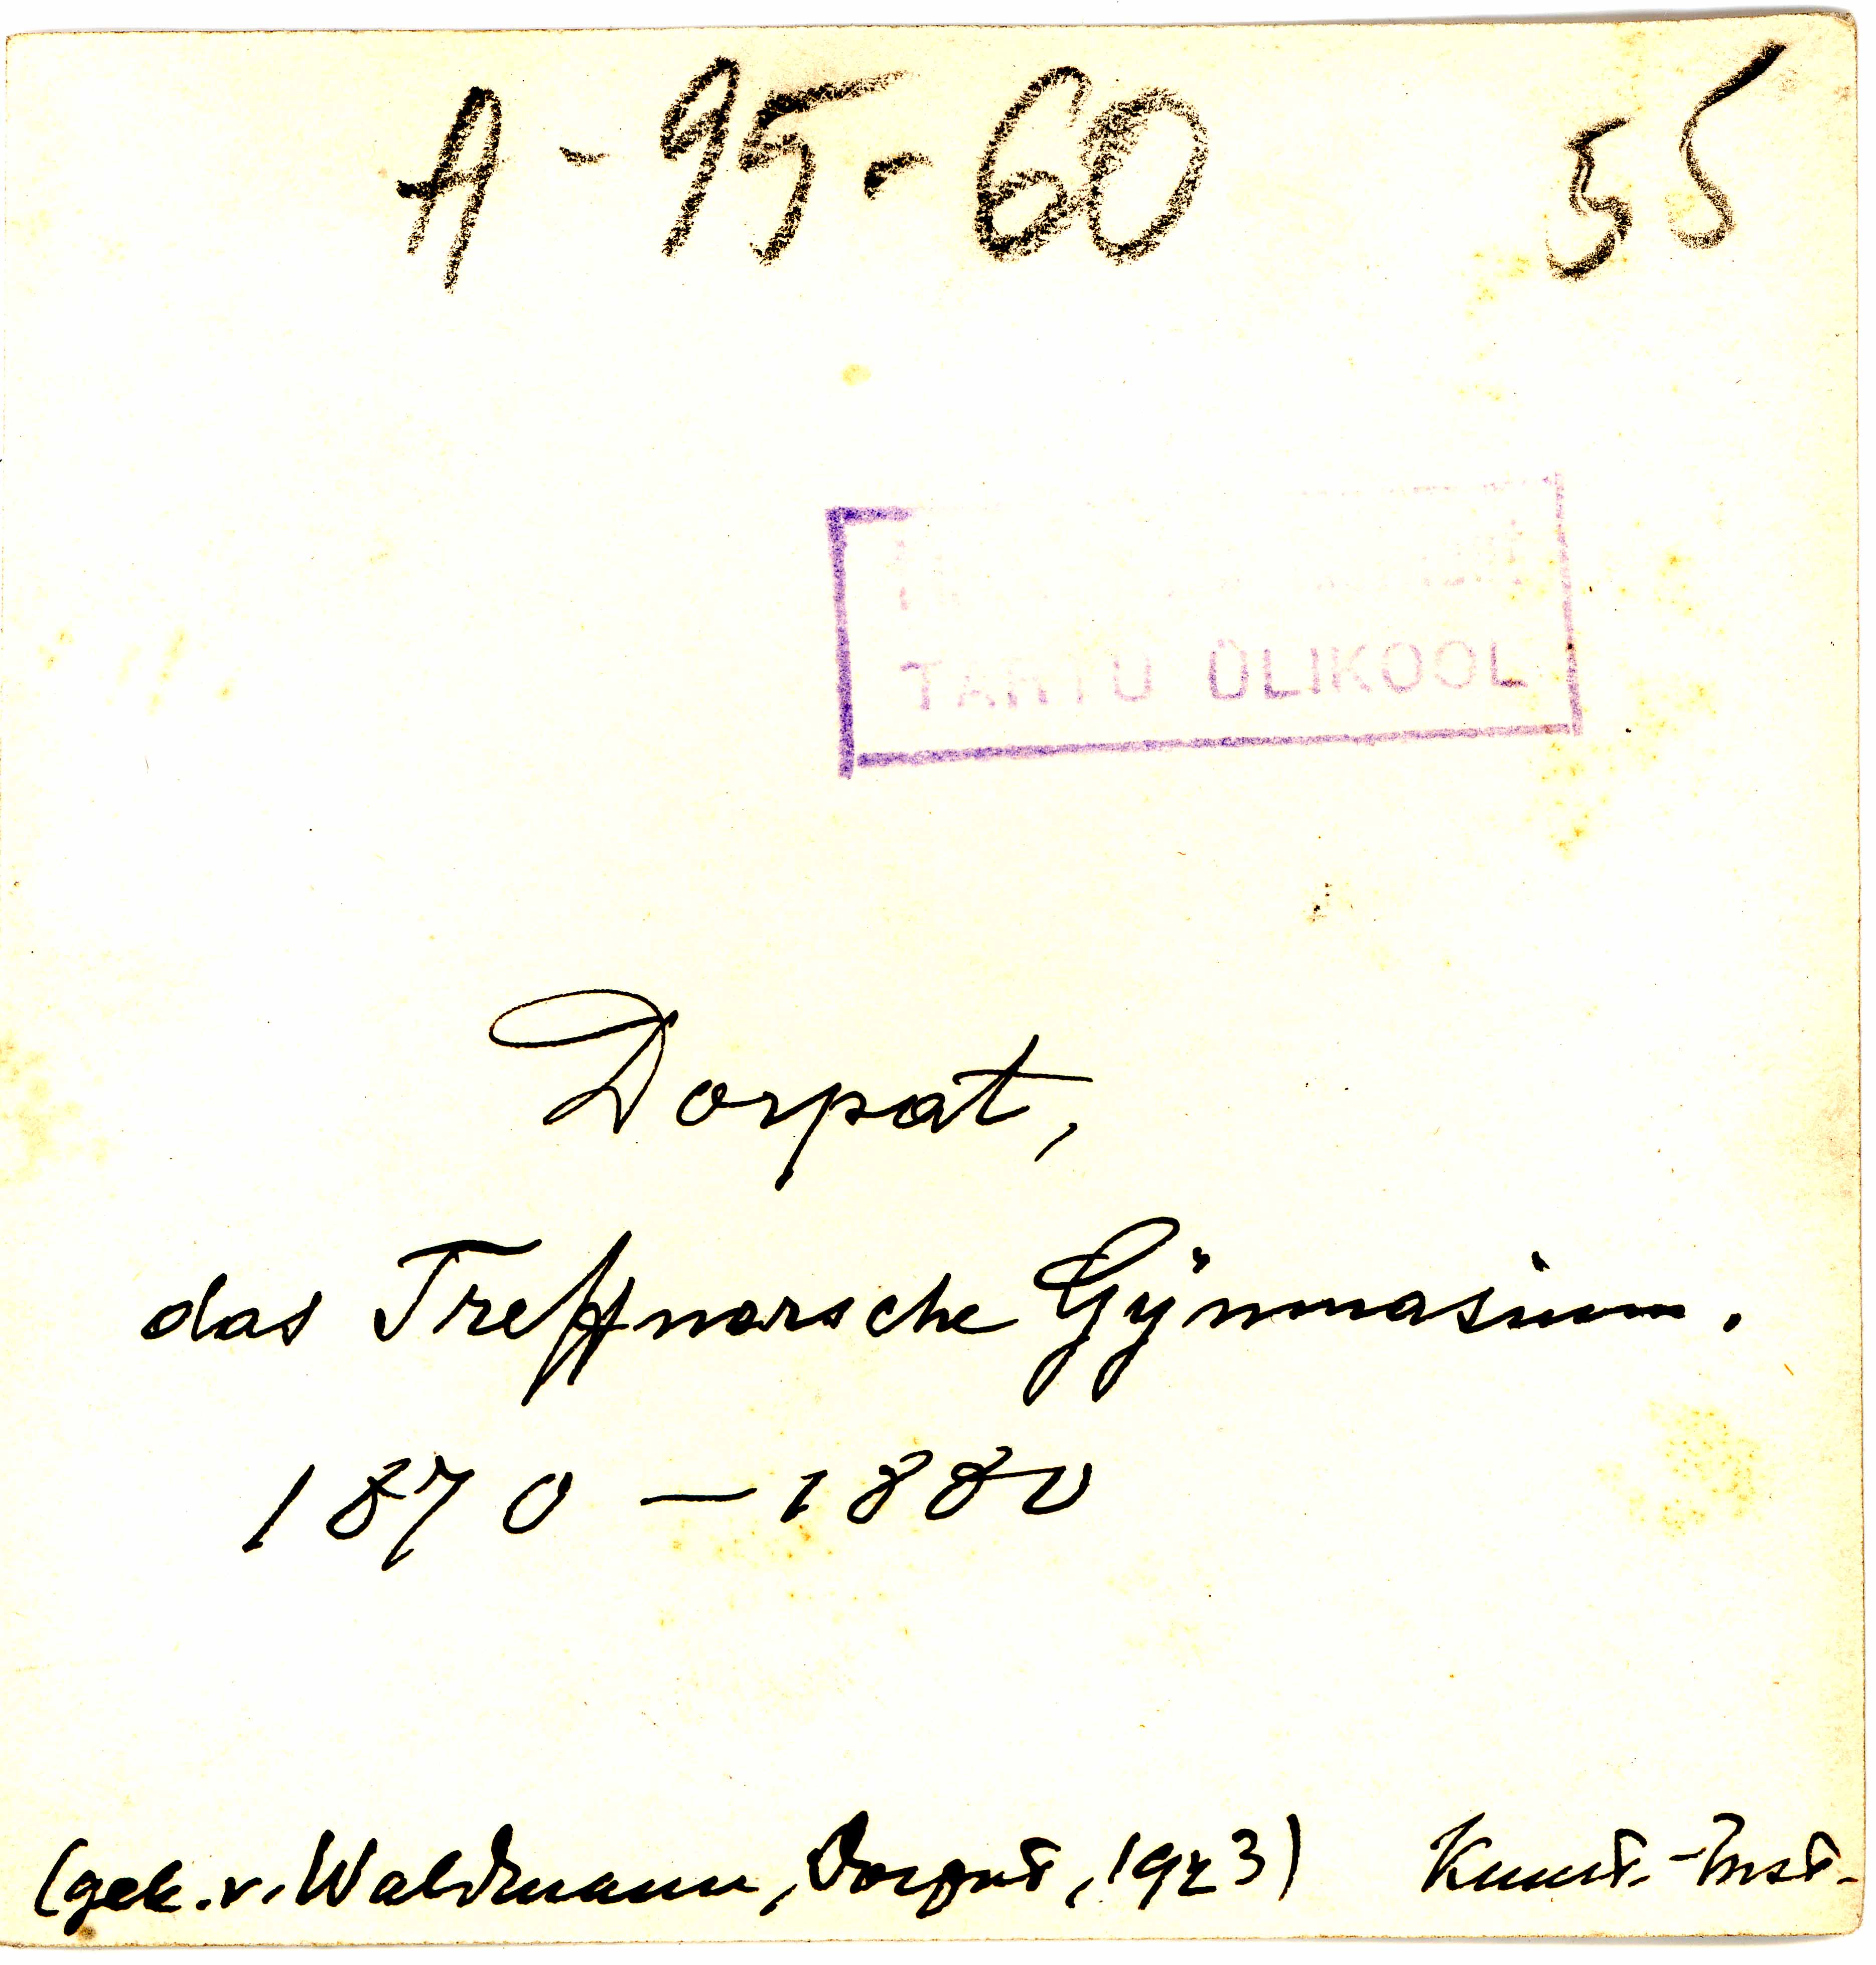 A - 95 - 60 55
TARTU ÜLIKOOL
Dorpat,
das Treffnersche Gÿmnasium.
1870 — 1880
(gek. v. Waldmann, Dorpat, 1923) Kunst.-Inst.